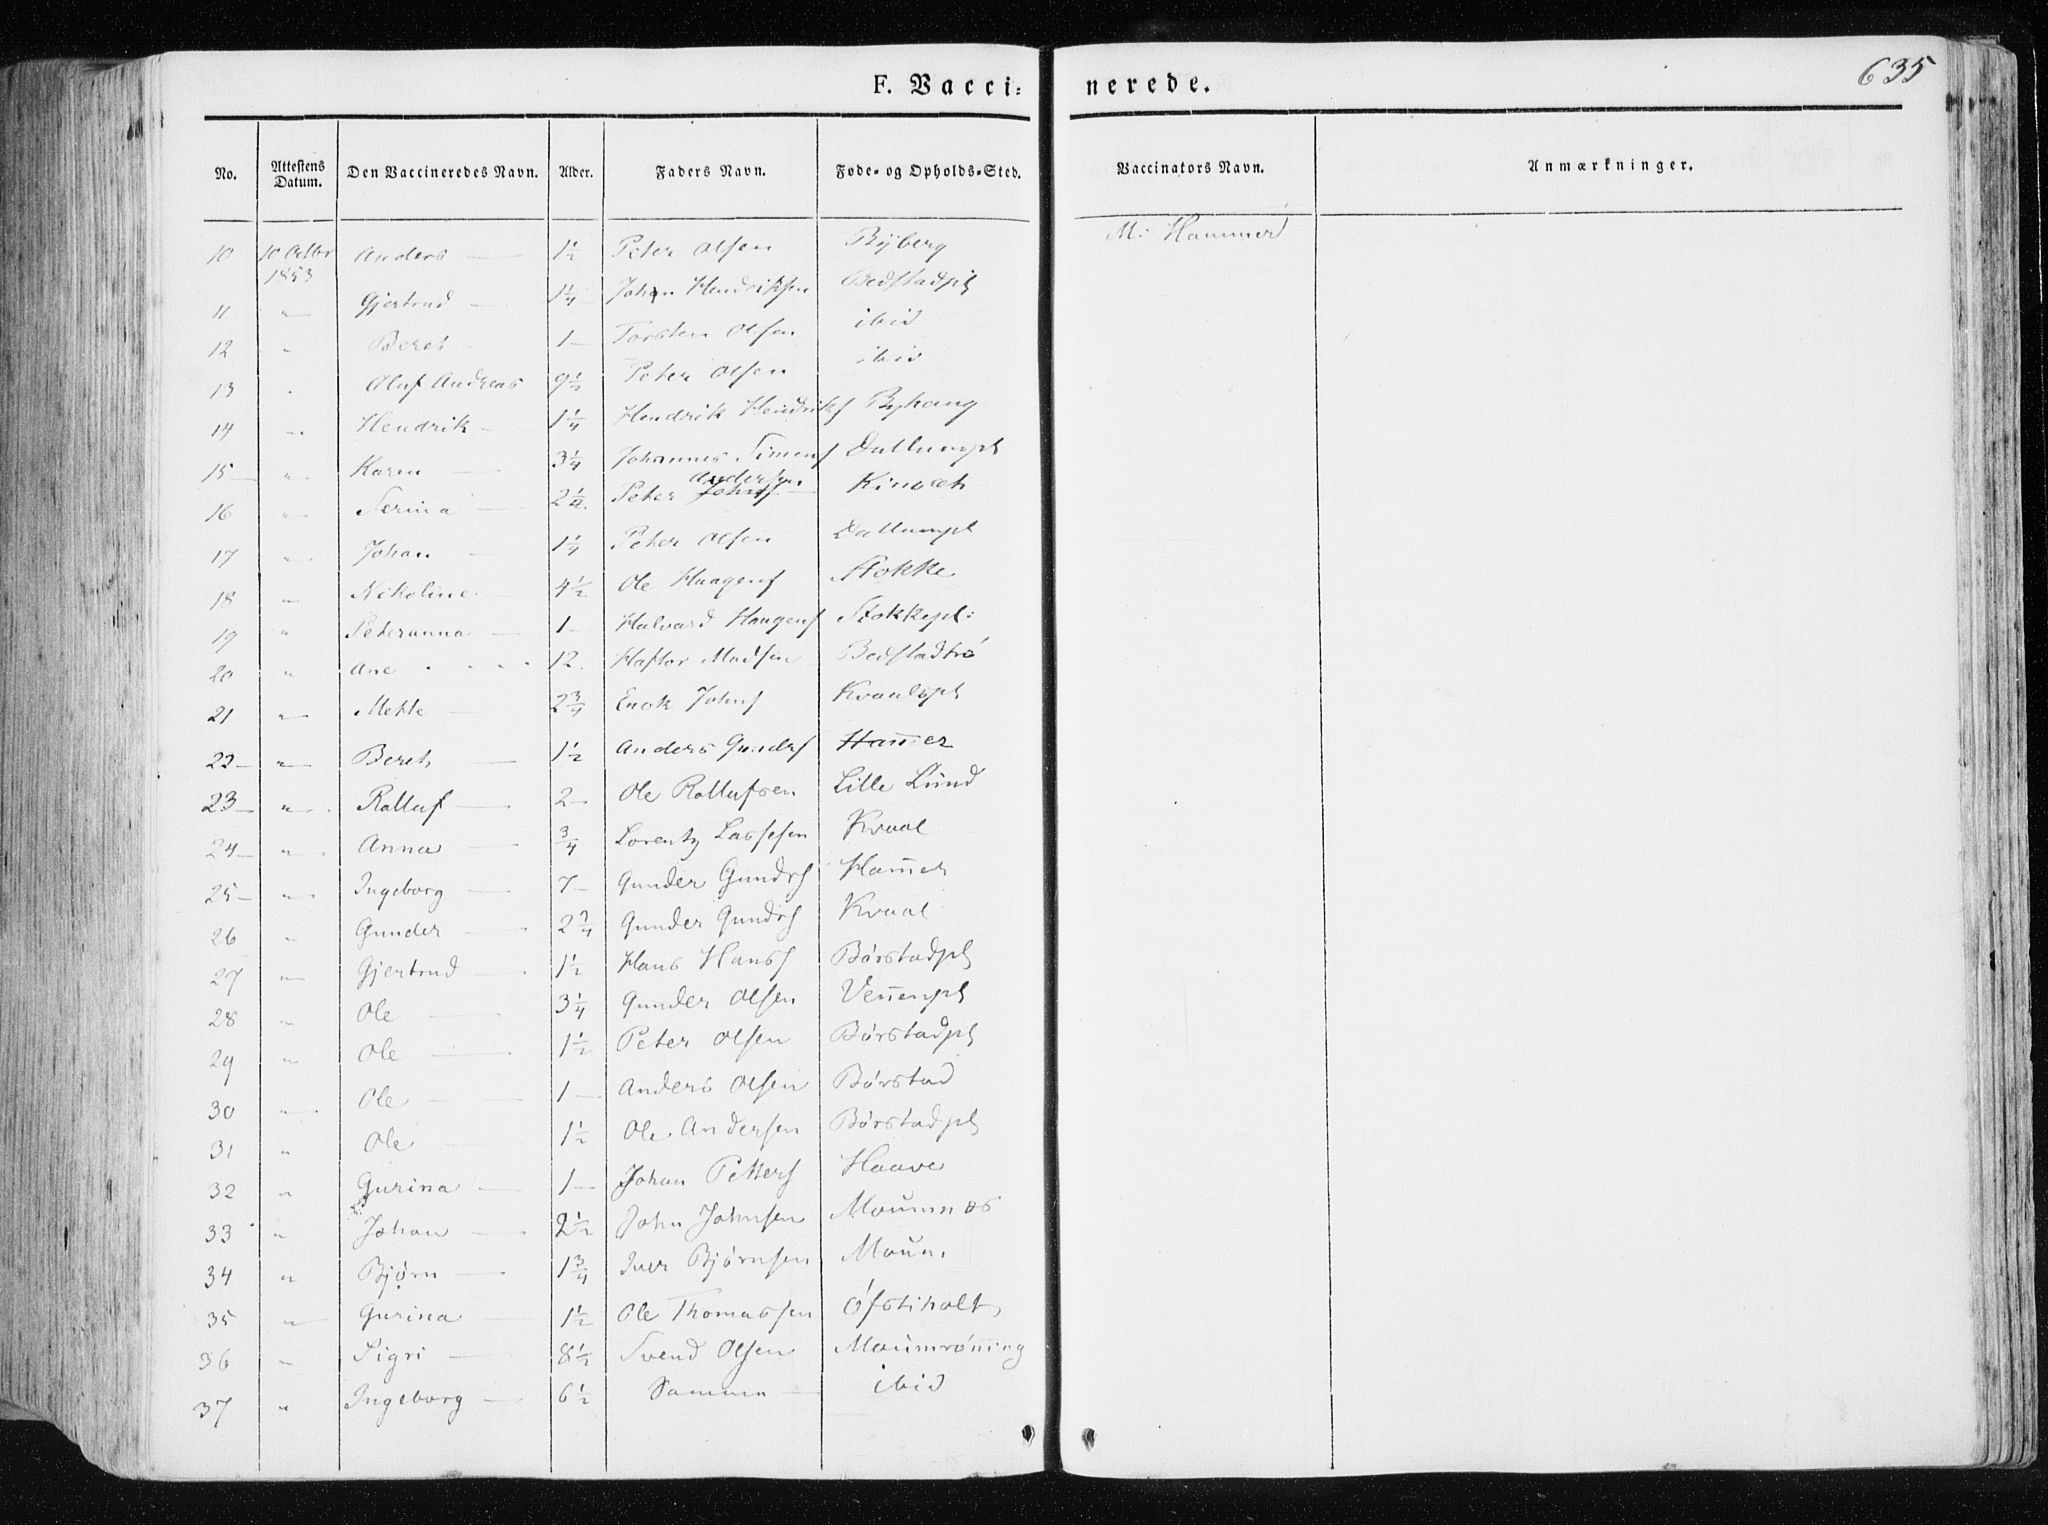 635
F. Vacci= nerede.
No. Attestens Datum. Den Vaccineredes Navn. Alder. Faders Navn. Føde- og Opholds-Sted. Vaccinators Navn. Anmærkninger.
10 10 Octbr 1853 Anders — 1½ Peter Olsen Ryberg M: Hammer
11 " Gjertrud — 1¼ Johan Hendriksen Bedstadpl
12 " Beret 1 — Torsten Olsen ibid
13 " Oluf Andreas 9½ Peter Olsen ibid
14 " Hendrik — 1¼ Hendrik Hendriks Byhaug
15 " Karen — 3¼ Johannes Simens Dallumpl
16 " Serina — 2¼ Peter Johns Andersen
17 " Johan — 1¼ Peter Olsen Dallumpl
18 " Nikoline — 4½ Ole Haagens Stokke
19 " Peteranna — 1 — Halvard Haugens Stokkepl:
20 " Ane 12. Haftor Madsen Bedstadtrø
21 " Mehle — 2¾ Enok Johns Kvaalspl
22 " Beret — 1½ Anders Gundrs Ham̄er
23 " Rolluf — 2 — Ole Rollufsen Lille Lund
24 " Anna — ¾ Lorentz Lassesen Kvaal
25 " Ingeborg — 7 — Gunder Gundrs Ham̄er
26 " Gunder — 2¾ Gunder Gundrs Kvaal
27 " Gjertrud — 1½ Hans Hans Børstadpl
28 " Ole — 3¼ Gunder Olsen Ven̄enpl
29 " Ole — 1½ Peter Olsen Børstadpl
30 " Ole — 1 — Anders Olsen Børstad
31 " Ole — 1½ Ole Andersen Børstadpl
32 " Gurina — 1 — Johan Petters Haave
33 " Johan — 2½ John Johnsen Moumnæs
34 " Bjørn — 1¾ Iver Bjørnsen Moum
35 " Gurina — 1½ Ole Thomassen Øfstiholt
36 " Sigri — 8½ Svend Olsen Moumrøn̄ing
37 " Ingeborg — 6½ Samme — ibid